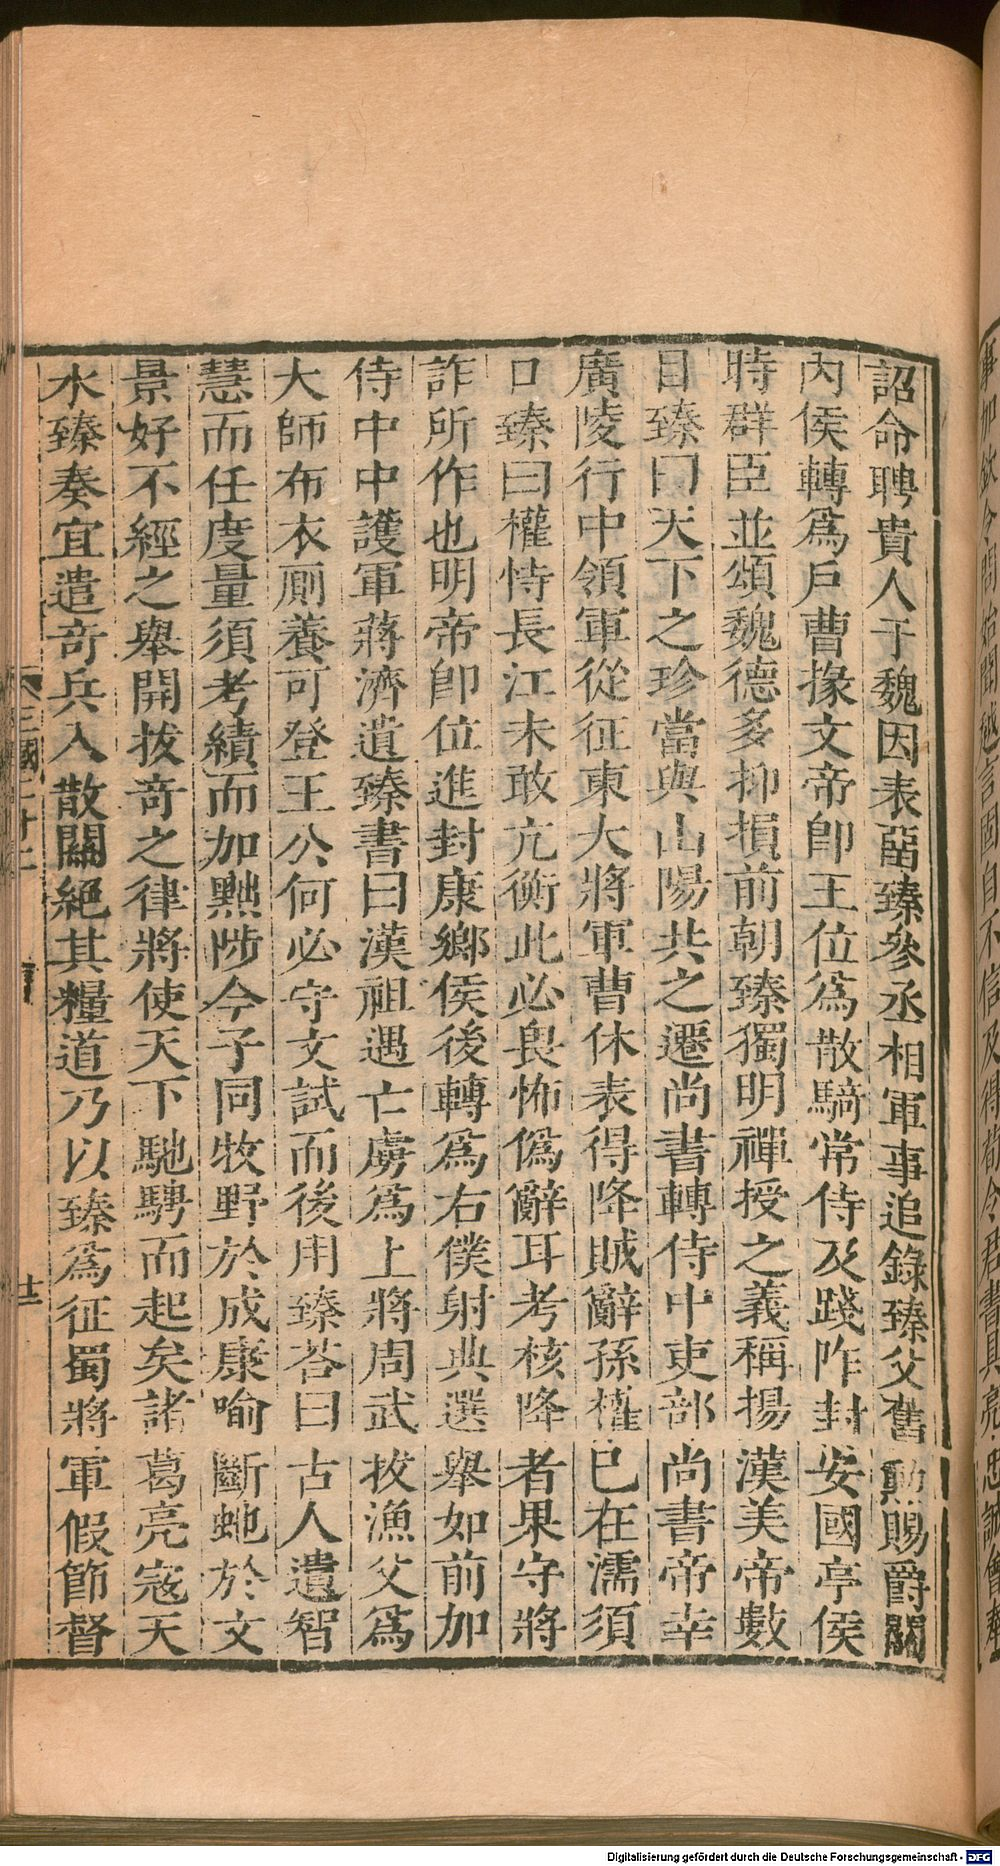 詔命聘貴人于魏因表畱臻參丞相軍事追錄臻父舊勲賜爵關
內侯轉爲戶曹掾文帝卽王位爲散騎常侍及踐阼封安國亭侯
時群臣並頌魏德多抑損前朝臻獨明禪授之義稱揚漢美帝數
目臻曰天下之珍當與山陽共之遷尚書轉侍中吏部尚書帝幸
廣陵行中領軍從征東大將軍曹休表得降賊辭孫權已在濡須
口臻曰權恃長江未敢亢衡此必畏怖僞辭耳考核降者果守將
詐所作也明帝卽位進封康鄉侯後轉爲右僕射典選舉如前加
侍中中護軍蔣濟遺臻書曰漢祖遇亡虜爲上將周武拔漁父爲
大師布衣厮養可登王公何必守文試而後用臻荅曰古人遺智
慧而任度量須考績而加黜陟今子同牧野於成康喻斷虵於文
景好不經之舉開拔奇之律將使天下馳騁而起矣諸葛亮寇天
水臻奏宜遣奇兵入散關絕其糧道乃以臻爲征蜀將軍假節督
三國二十二
廿二
Digitalisierung gefördert durch die Deutsche Forschungsgemeinschaft - DFG